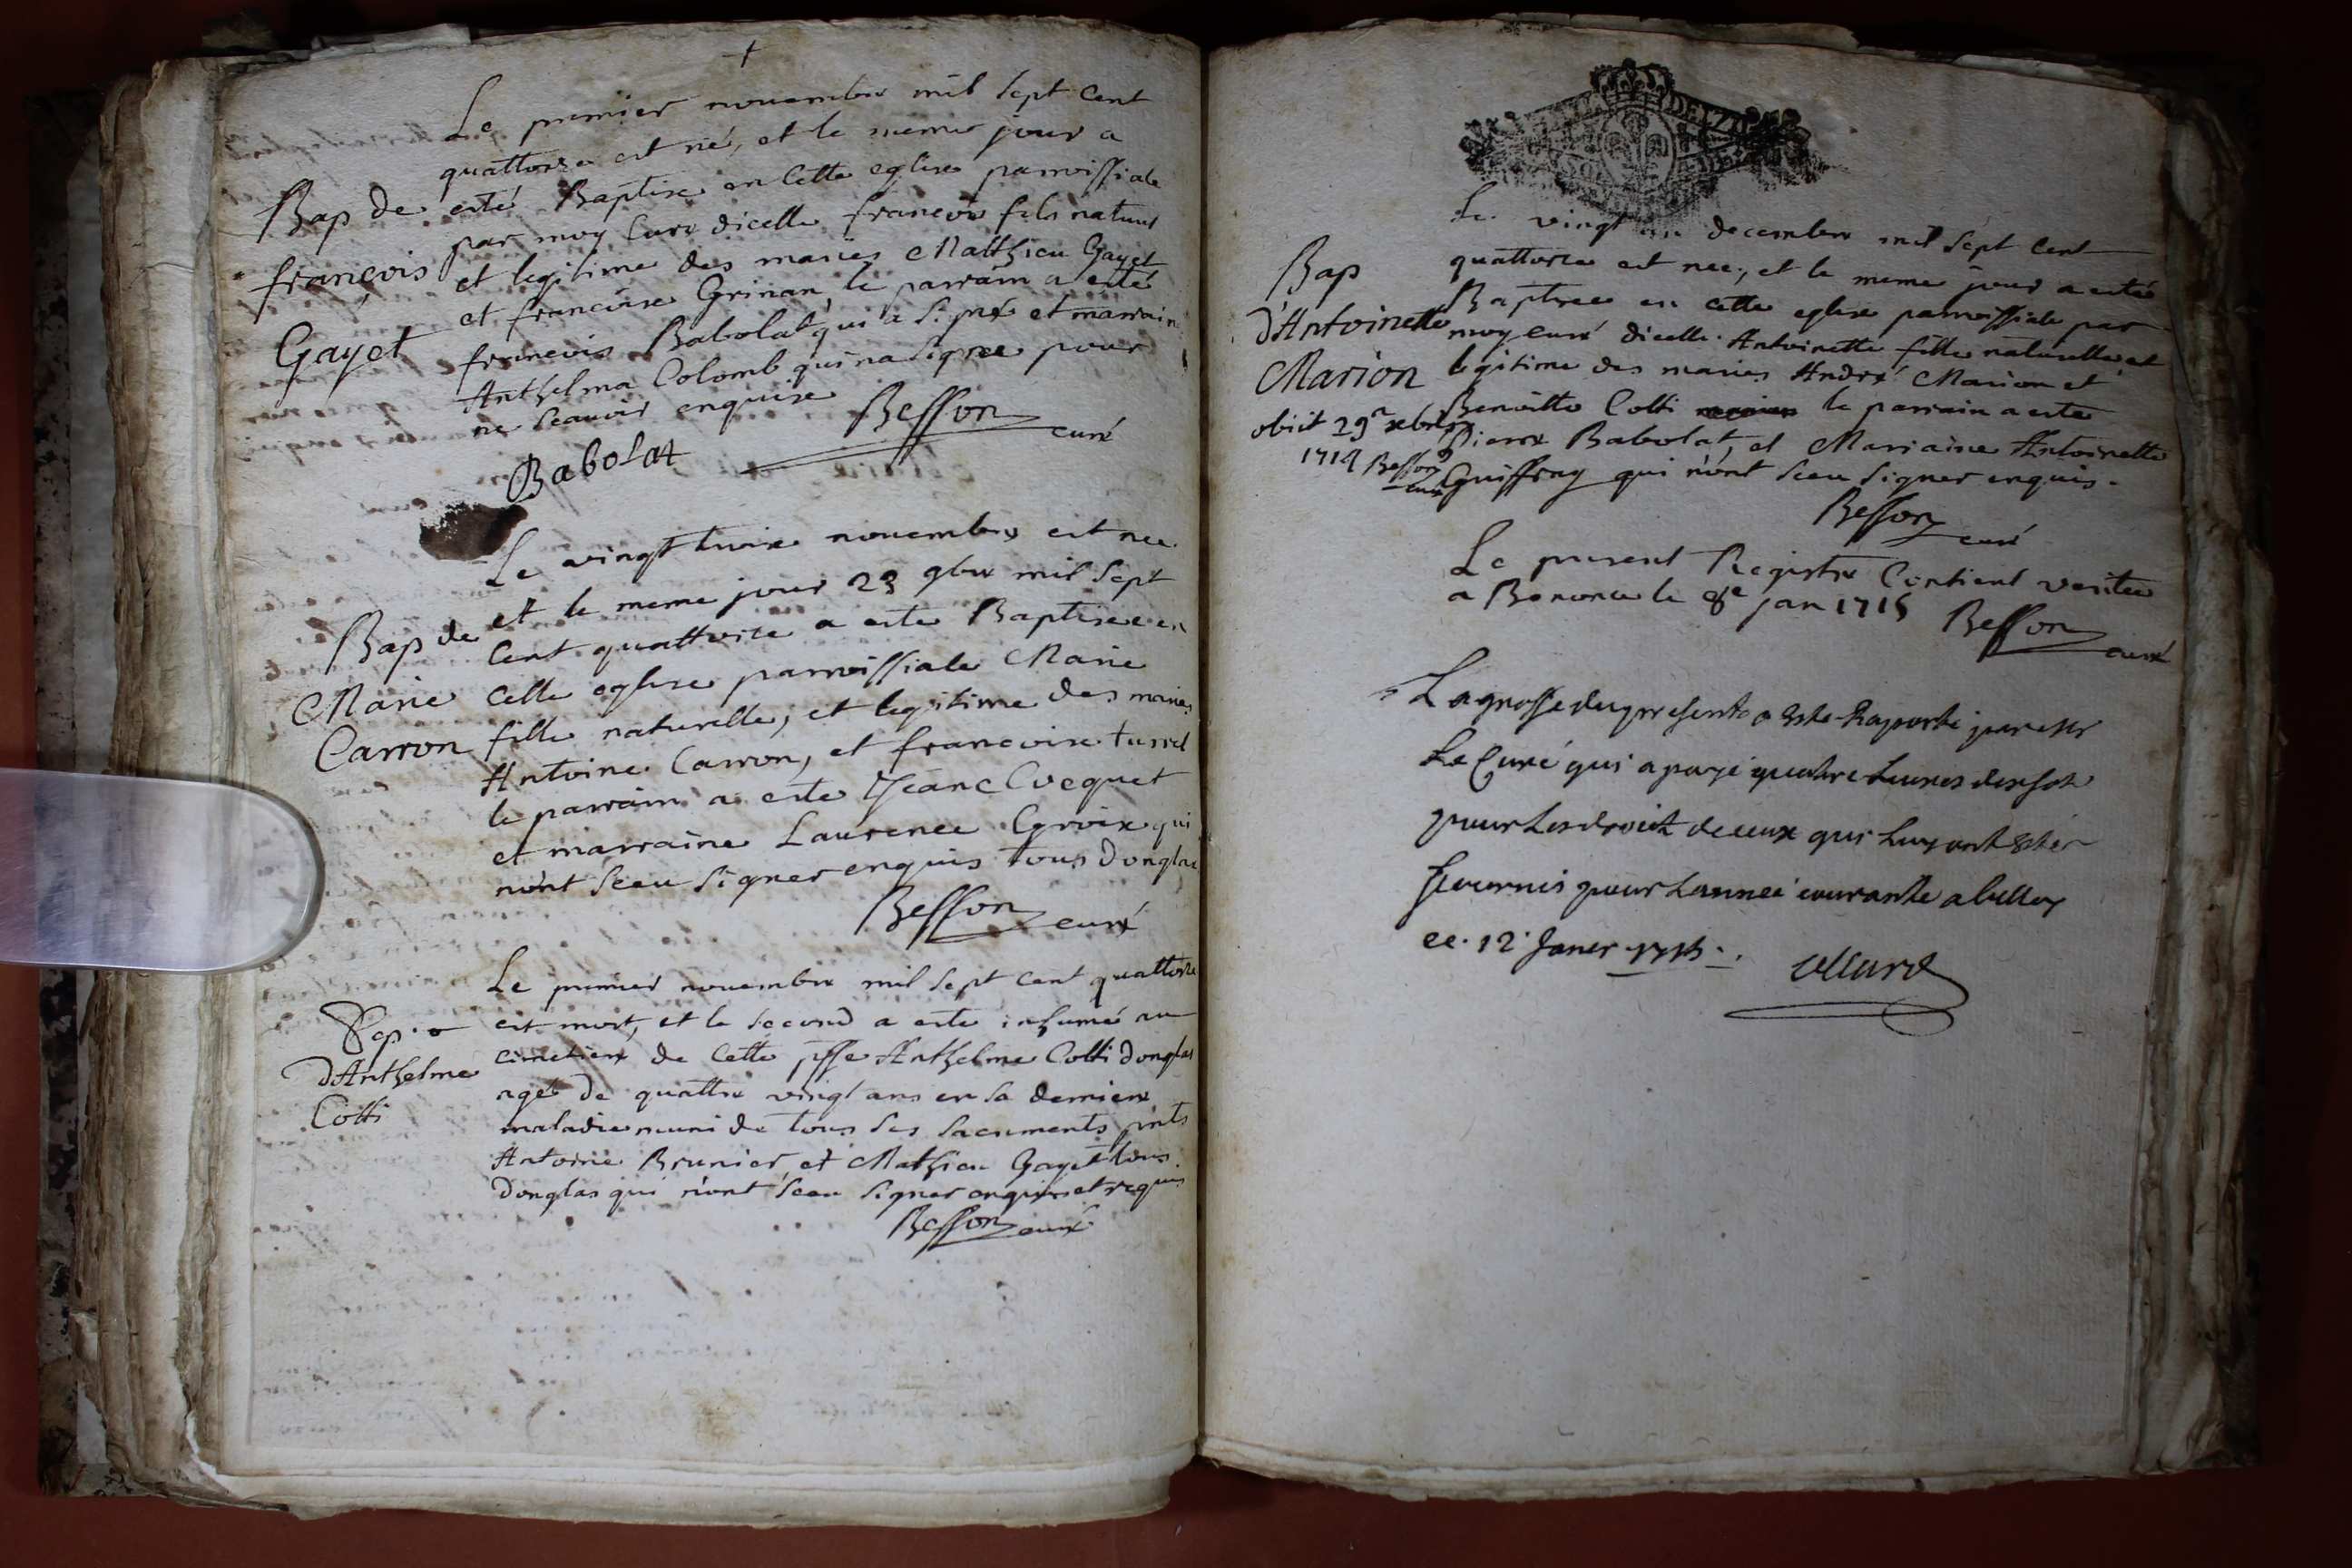 Le premier novembre mil sept cent
quattorze est né, et le meme jour a
esté Baptise en cette eglise parroissiale
par moy curé dicelle francois fils naturel
et legitime des maries Matthieu Gayet
et francoise Grinan, le parrain a esté
francois Babolat qui a signé et marraine
Anthelma Colomb qui na signee pour
ne scauoir enquise
Besson curé
Babolat
Bap de
françois
Gayet
Le vingt trois novembre est nee
et le meme jour 23 9bre mil sept
cent quattorze a este Baptisee en
cette eglise parroissiale Marie
fille naturelle, et legitime des maries
Antoine Carron, et francoise turrel
le parrain a este Jean Cocquet
et marraine Laurence Groix qui
nont sceu signer enquis tous Donglas
Besson curé
Bap de
Marie
Carron
Le premier novembre mil sept cent quattorze
est mort, et le second a este inhumé au
cimetiere de cette psse Anthelme Cotti donglas
agé de quattre vingt ans en sa derniere
maladie muni de tous ses sacrements pnts
Antoine Brunier, et Mathieu Gayet tous
donglas qui n'ont sceu signer enquis et requis
Besson curé
Sep.
d'Anthelme
Cotti
Le vingt decembre mil sept cent
quattorze est nee, et le meme jour a esté
Baptisee en cette eglise parroissiale par
moy curé dicelle Antoinette fille naturelle, et
legitime des maries André Marion et
Benoitte Cotti le parrain a este
Pierre Babolat, et Marraine Antoinette
Guiffray qui n'ont sceu signer enquis.
Besson curé
Bap
d'Antoinette
Marion
obiit 29a xbris
1714 Besson
curé
Le present Registre Contient verité
a Benonce le 8e jan 1715
Besson curé
La grosse du presente a Este Raporté par
Le Curé qui a payé quatre Liures dix sols
pour Les droits de ceux qui Luy ont Esté
fournis pour L'année courante a belley
ce 12 Janer 1715.